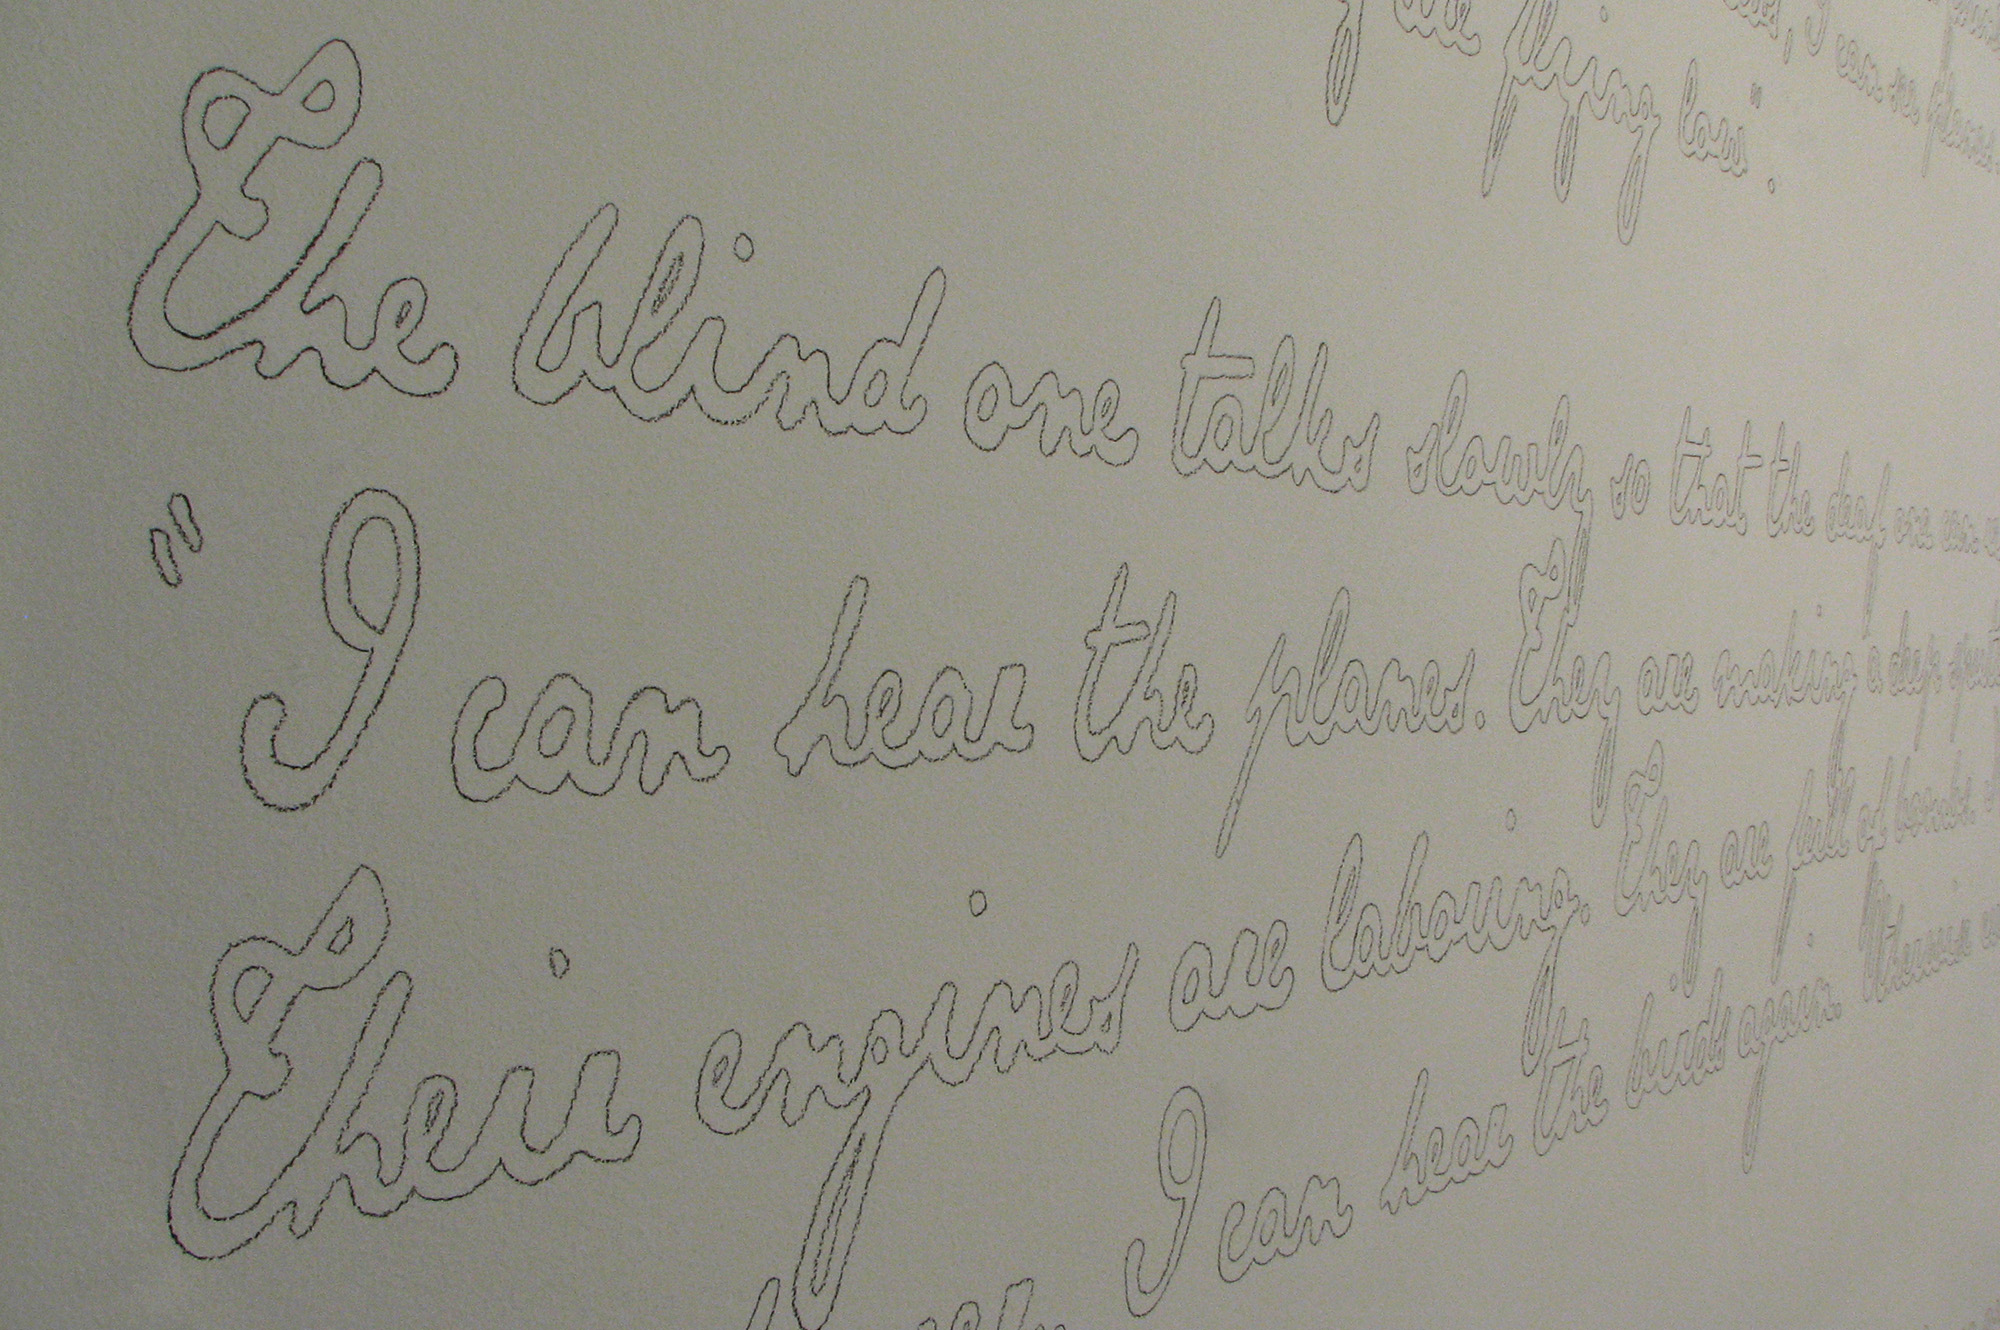 I can see planes
are flying low".
The blind one talks slowly so that the deaf one can
"I can hear the planes. They are making a deep
Their engines are labouring. They are full of bombs.
I can hear the birds again.